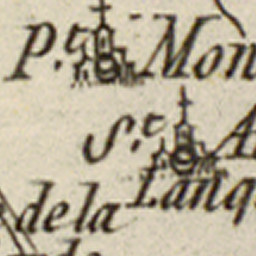 P.t Mon
S.t A
Lanq
de la